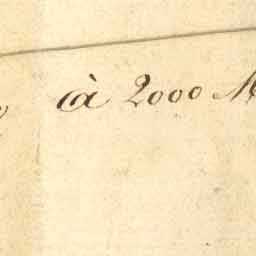 à 2000 M